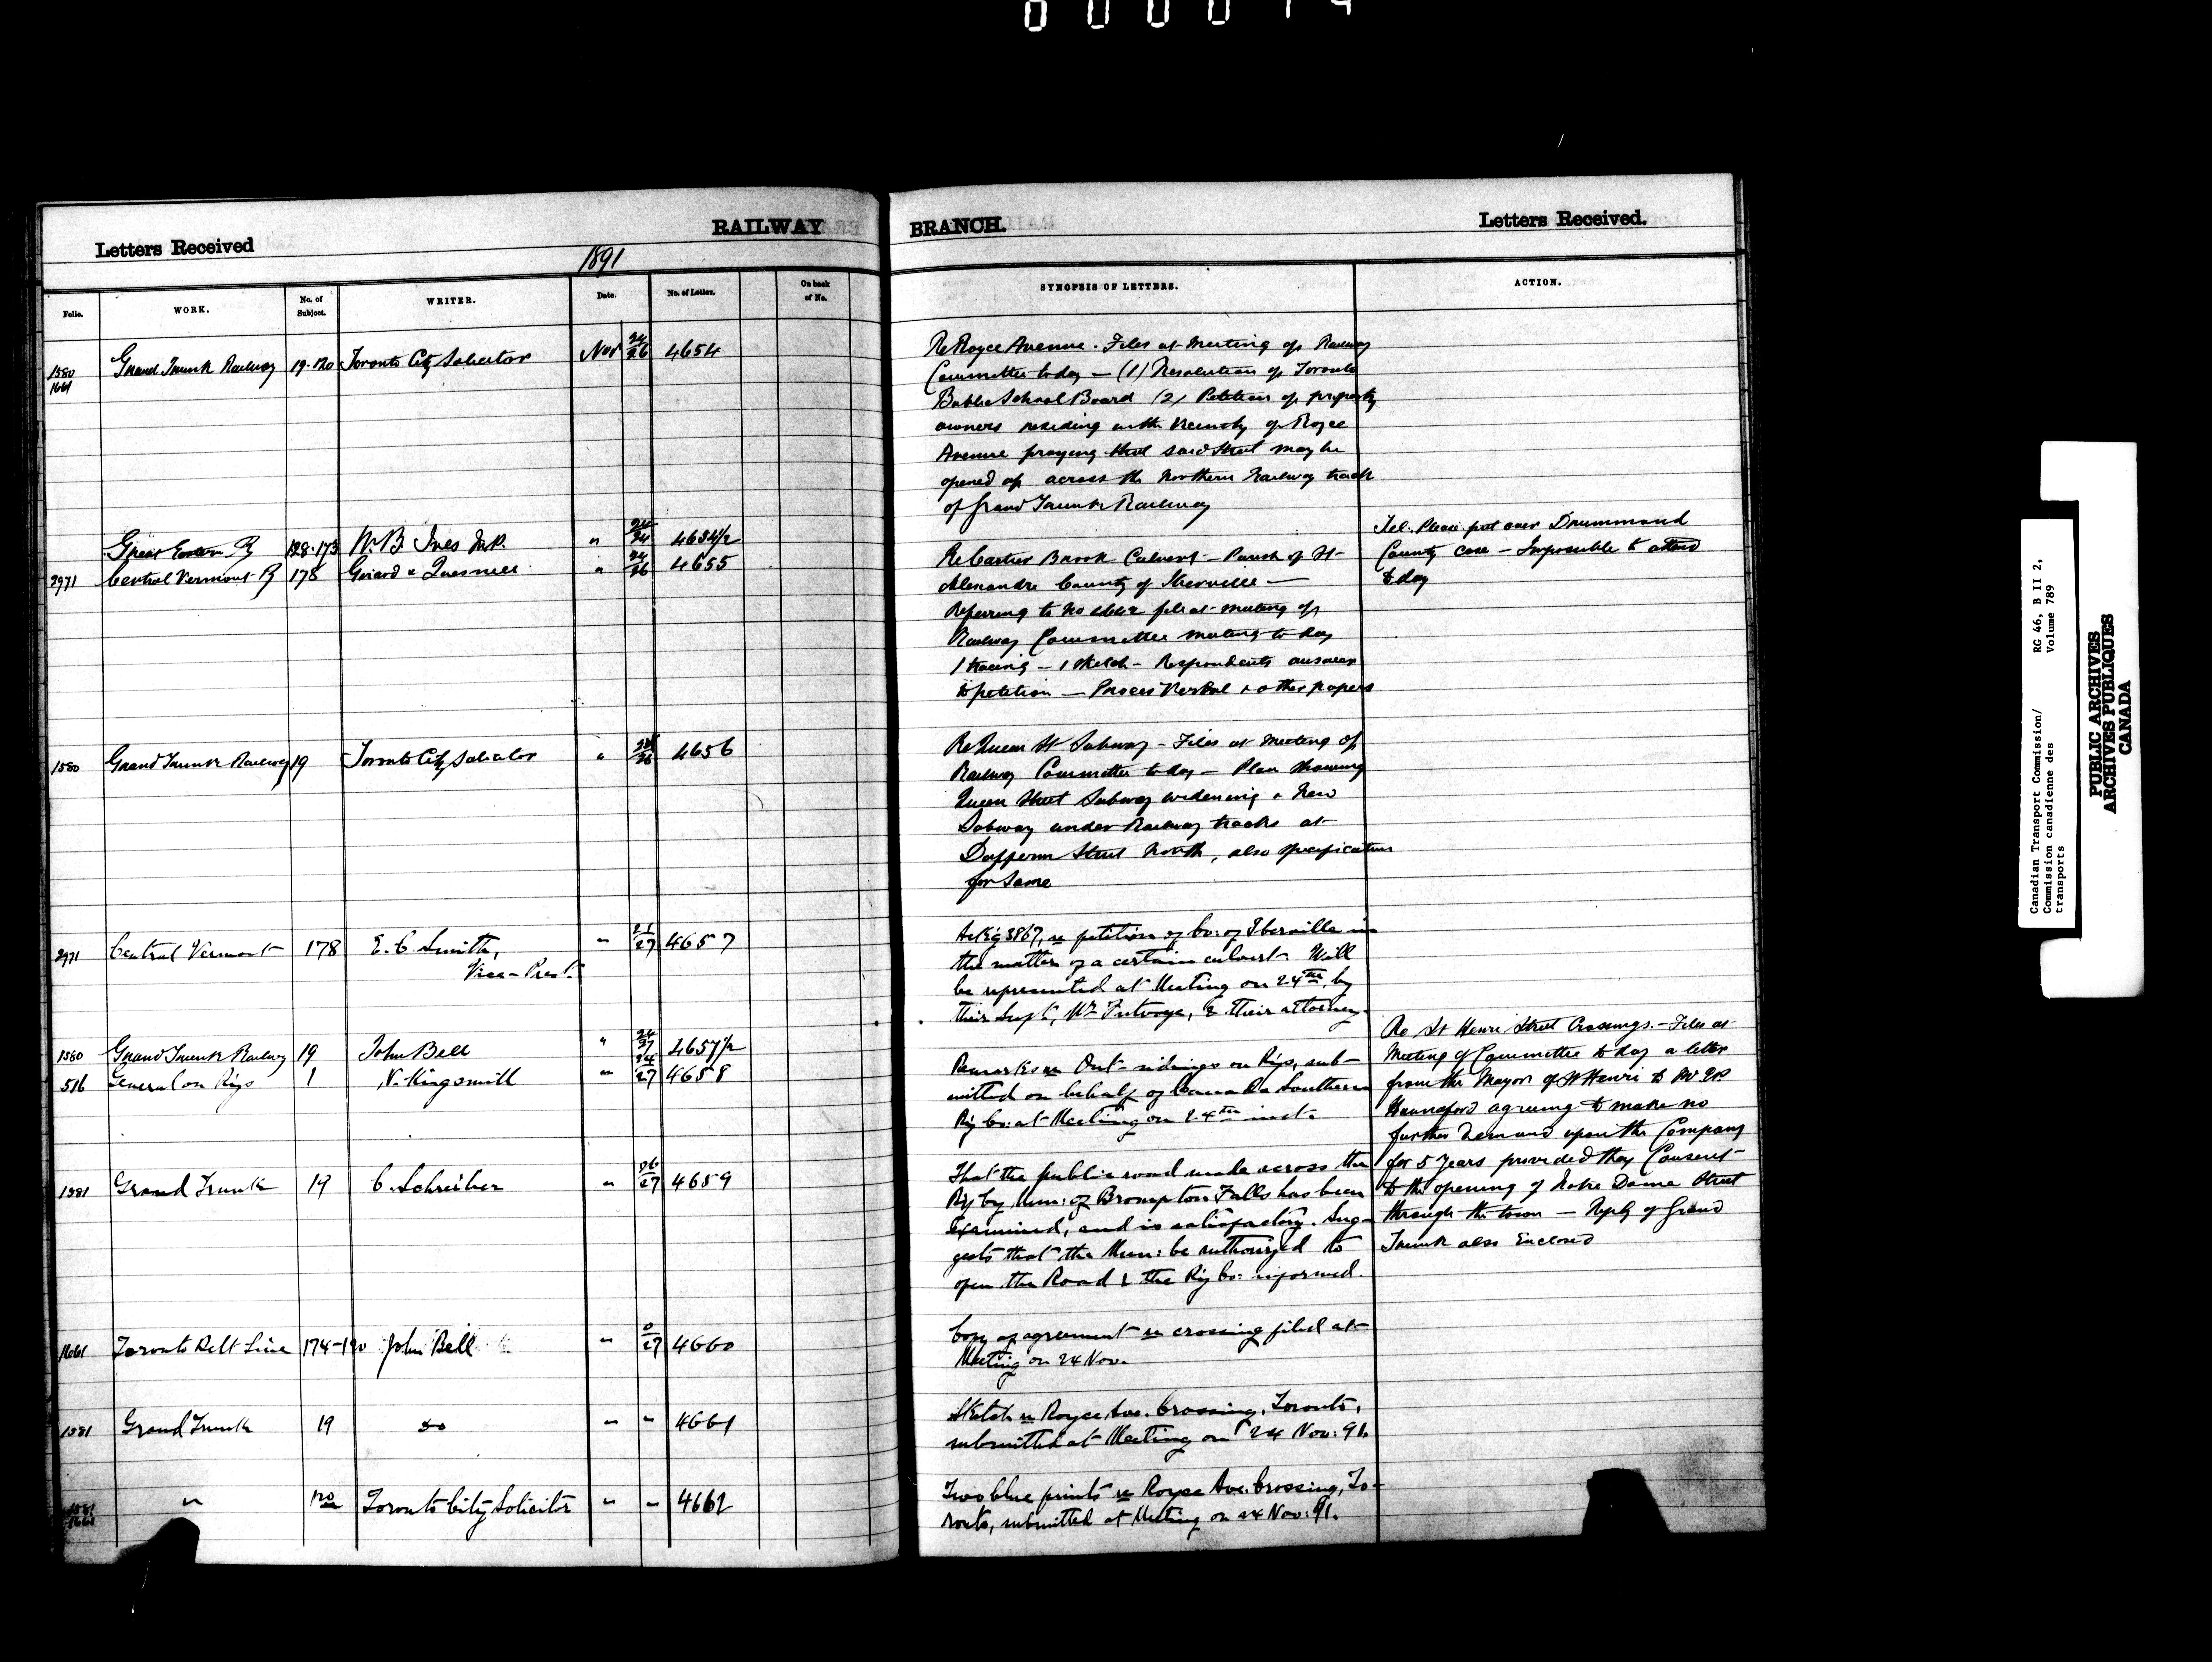 Letters Received
RAILWAY
BRANCH.
Letters Received.
1891
Folio.
WORK.
No. of Subject.
WRITER.
Date.
No. of Letter.
On back of No.
SYNOPSIS OF LETTERS.
ACTION.
1580 1661 Grand Trunk Railway 19-120 Toronto City Solicitor Nov 24/26 4654
Re Royce Avenue. Files at Meeting of Railway
Committee today — (1) Resolution of Toronto
Public School Board (2) Petition of property
owners residing in the vicinity of Royce
Avenue praying that said Street may be
opened up across the Northern Railway track
of Grand Trunk Railway
Great Eastern Ry 128-173 W.B. Ives M.P. " 24/24 4654½
Tel. Please put over Drummond
County case — Impossible to attend
to day
2971 Central Vermont Ry 178 Girard & Quesnell " 24/26 4655
Re Cartier Brook Culvert — Parish of St
Alexandre County of Iberville —
Referring to No 4642 file at meeting of
Railway Committee meeting to day
1 tracing — 1 sketch — Respondents answer
to petition — Proces Verbal & other papers
1580 Grand Trunk Railway 19 Toronto City Solicitor " 24/26 4656
Re Queen St Subway — Files at Meeting of
Railway Committee to day — Plan showing
Queen Street Subway widening & New
Subway under Railway tracks at
Dufferin Street North, also specification
for same
2971 Central Vermont 178 E. C. Smith, " 21/27 4657
Vice-Prest.
Ackg 3867, re petition of Co: of Iberville in
the matter of a certain culvert. Will
be represented at Meeting on 24th, by
their Supt, Mr Futvoye, & their attorney.
1580 Grand Trunk Railway 19 John Bell " 24/27 4657½
Re St Henri Street Crossings. — Files at
Meeting of Committee to day a letter
from the Mayor of St Henri to Mr
Hannaford agreeing to make no
further demand upon the Company
for 5 years provided they Consent
to the opening of Notre Dame Street
through the town — Reply of Grand
Trunk also Enclosed
516 General on Rys 1 N. Kingsmill " 24/27 4658
Remarks re Out-ridings on Rys, sub-
mitted on behalf of Canada Southern
Ry Co: at Meeting on 24th inst.
1581 Grand Trunk 19 C. Schreiber " 26/27 4659
That the public road made across the
Ry by Mun: of Brompton Falls has been
Examined, and is satisfactory. Sug-
gests that the Mun: be authorized to
open the Road & the Ry Co: informed.
1661 Toronto Belt Line 174-120 John Bell " 0/27 4660
Copy of agreement re crossing filed at
Meeting on 24 Nov.
1581 Grand Trunk 19 do " " 4661
Sketch re Royce Ave. Crossing, Toronto,
submitted at Meeting on 24 Nov: 91.
1581 1661 " 120 Toronto City Solicitor " " 4662
Two blue prints re Royce Ave. Crossing, To-
ronto, submitted at Meeting on 24 Nov: 91.
Canadian Transport Commission/
Commission canadienne des
transports
RG 46, B II 2,
Volume 789
PUBLIC ARCHIVES
ARCHIVES PUBLIQUES
CANADA